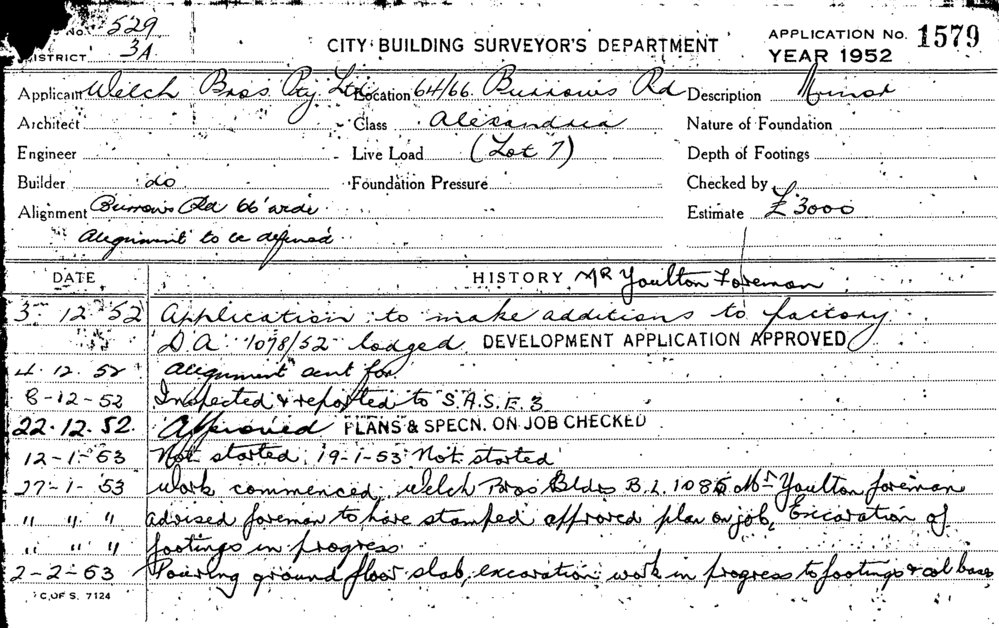 No. 529
DISTRICT 3A
CITY BUILDING SURVEYOR'S DEPARTMENT
APPLICATION No. 1579
YEAR 1952
Applicant Welch Bros. Pty. Ltd. Location 64/66 Burrows Rd Description Minor
Architect Class Alexandria Nature of Foundation
Engineer Live Load (Lot 7) Depth of Footings
Builder do Foundation Pressure Checked by
Alignment Burrows Rd 66' wide Estimate £3000
Alignment to be defined
DATE HISTORY MR Youlton Foreman
3-12-52 Application to make additions to factory
D.A. 1078/52 lodged DEVELOPMENT APPLICATION APPROVED
4.12.52 Alignment sent for
8-12-52 Inspected & reported to S.A.S.E. 3
22.12.52. Approved PLANS & SPECN. ON JOB CHECKED
12-1-53 Not started. 19-1-53 Not started
27-1-53 Work commenced, Welch Bros Bldrs B.L. 1085 Mr Youlton foreman
" " " advised foreman to have stamped approved plan on job, Excavation of
" " " footings in progress
2-2-53 Pouring ground floor slab, excavation work in progress to footings & col bases
C. OF S. 7124